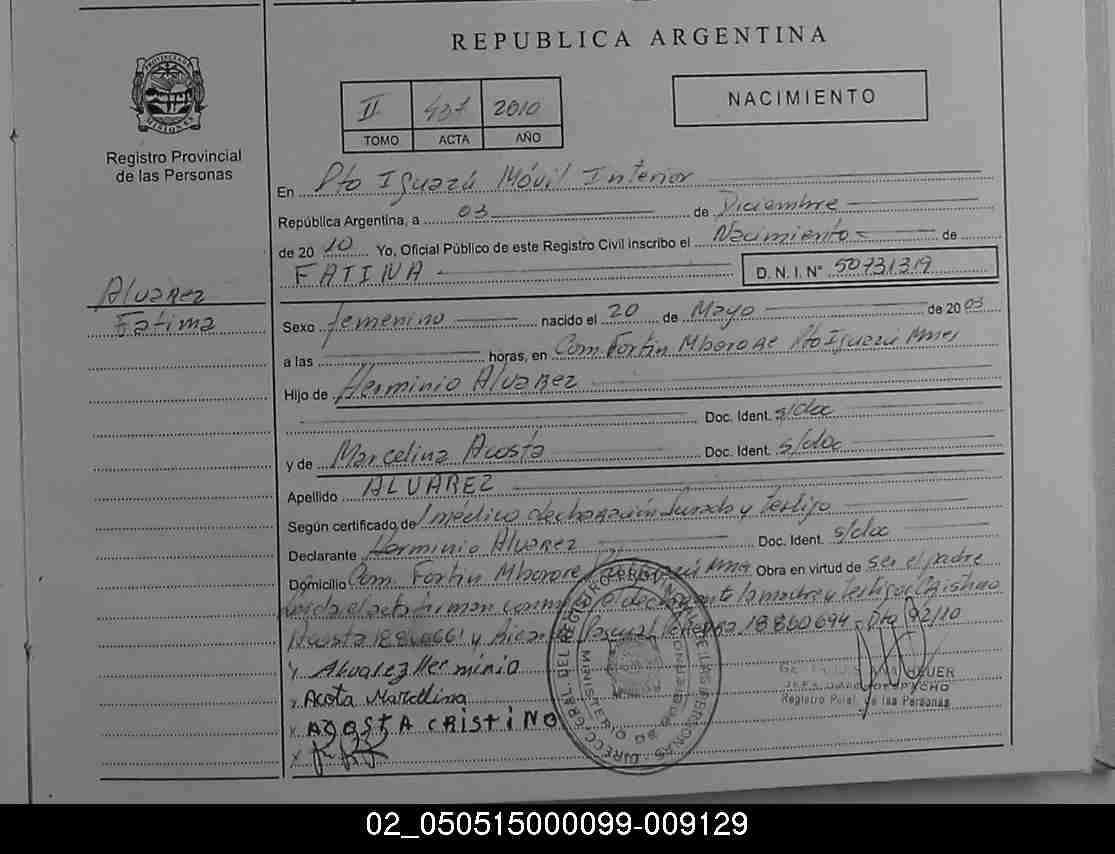 REPUBLICA ARGENTINA
PROVINCIA DE MISIONES
Registro Provincial
de las Personas
II 437 2010
TOMO ACTA AÑO
NACIMIENTO
En Pto Iguazú Móvil Interior
República Argentina, a 03 de Diciembre
de 2010 Yo, Oficial Público de este Registro Civil inscribo el Nacimiento de
FATIMA D.N.I. N° 50731319
Alvarez
Fatima
Sexo femenino nacido el 20 de Mayo de 2003
a las horas, en Com. Fortin Mborore Pto Iguazú Mnes
Hijo de Herminio Alvarez
Doc. Ident. s/doc
y de Marcelina Acosta Doc. Ident. s/doc
Apellido ALVAREZ
Según certificado de / médico declaración Jurada y testigo
Declarante Herminio Alvarez Doc. Ident. s/doc
Domicilio Com. Fortin Mborore Obra en virtud de ser el padre
el acta firman el declarante la madre y testigos Cristino
Acosta y 18860694 - Dto 92/10
x Alvarez Herminio
x Acota Marcelina
x AGOSTA CRISTINO
x
JEFA DESPACHO
Registro Pcial. de las Personas
02_050515000099-009129